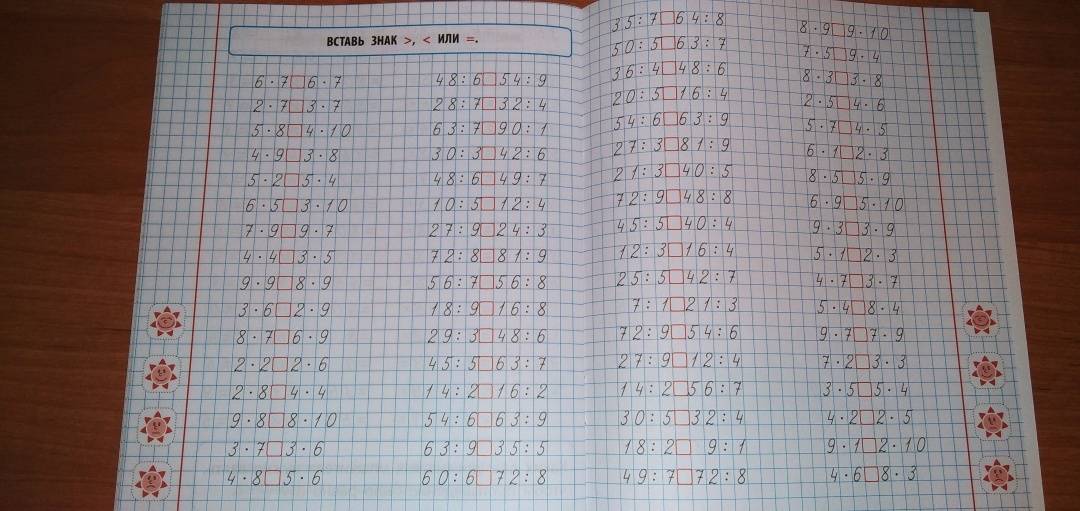 ВСТАВЬ ЗНАК >, < ИЛИ =.
6·7□6·7
2·7□3·7
5·8□4·10
4·9□3·8
5·2□5·4
6·5□3·10
7·9□9·7
4·4□3·5
9·9□8·9
3·6□2·9
8·7□6·9
2·2□2·6
2·8□4·4
9·8□8·10
3·7□3·6
4·8□5·6
48:6□54:9
28:7□32:4
63:7□90:1
30:3□42:6
48:6□49:7
10:5□12:4
27:9□24:3
72:8□81:9
56:7□56:8
18:9□16:8
29:3□48:6
45:5□63:7
14:2□16:2
54:6□63:9
63:9□35:5
60:6□72:8
35:7□64:8
50:5□63:7
36:4□48:6
20:5□16:4
54:6□63:9
27:3□81:9
21:3□40:5
72:9□48:8
45:5□40:4
12:3□16:4
25:5□42:7
7:1□21:3
72:9□54:6
27:9□12:4
14:2□56:7
30:5□32:4
18:2□9:1
49:7□72:8
8·9□9·10
7·5□9·4
8·3□3·8
2·5□4·6
5·7□4·5
6·1□2·3
8·5□5·9
6·9□5·10
9·3□3·9
5·1□2·3
4·7□3·7
5·4□8·4
9·7□7·9
7·2□3·3
3·5□5·4
4·2□2·5
9·1□2·10
4·6□8·3